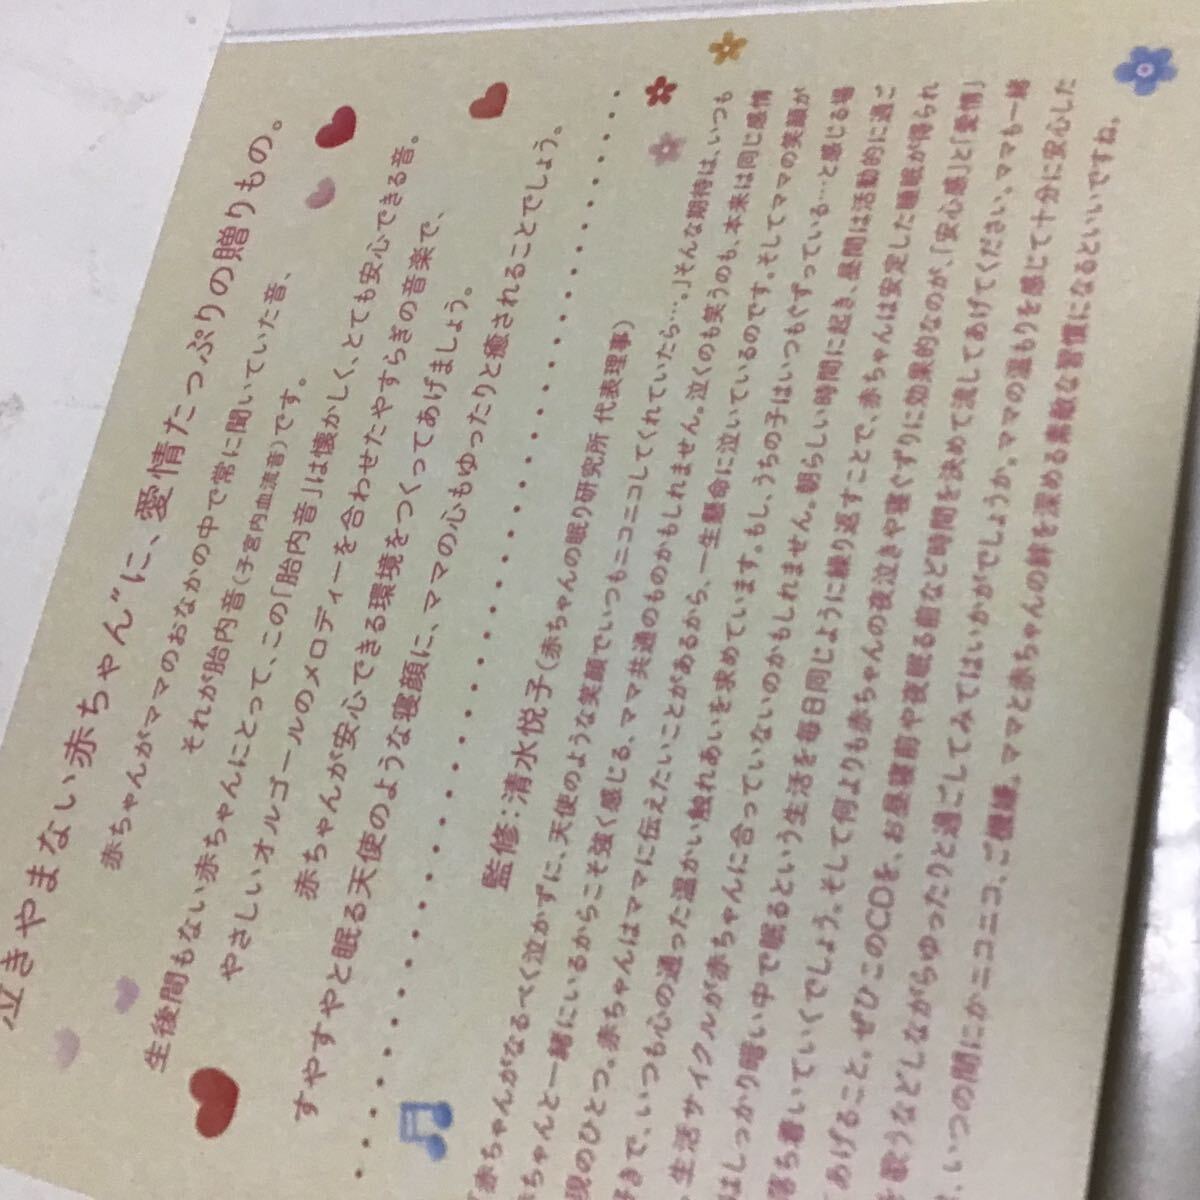 泣きやまない赤ちゃん”に、愛情たっぷりの贈りもの。
赤ちゃんがママのおなかの中で常に聞いていた音、
それが胎内音(子宮内血流音)です。
生後間もない赤ちゃんにとって、この「胎内音」は懐かしく、とても安心できる音。
やさしいオルゴールのメロディーを合わせたやすらぎの音楽で、
赤ちゃんが安心できる環境をつくってあげましょう。
すやすやと眠る天使のような寝顔に、ママの心もゆったりと癒されることでしょう。
監修:清水悦子(赤ちゃんの眠り研究所 代表理事)
「赤ちゃんがなるべく泣かずに、天使のような笑顔でいつもニコニコしてくれていたら…。」そんな期待は、いつも
赤ちゃんと一緒にいるからこそ強く感じる、ママ共通のものかもしれません。泣くのも笑うのも、本来は同じ感情
現のひとつ。赤ちゃんはママに伝えたいことがあるから、一生懸命に泣いているのです。そしてママの笑顔が
好きで、いつも心の通った温かい触れあいを求めています。もし、うちの子はいつもぐずっている…と感じる場
、生活サイクルが赤ちゃんに合っていないのかもしれません。朝らしい時間に起き、昼間は活動的に過ご
はしっかり暗い中で眠るという生活を毎日同じように繰り返すことで、赤ちゃんは安定した睡眠が得られ
落ち着いていくでしょう。そして何よりも赤ちゃんの夜泣きや寝ぐずりに効果的なのが、「安心感」と「愛情」
てあげること。ぜひこのCDを、お昼寝前や夜眠る前など時間を決めて流してあげてください。ママも一緒
を歌うなどしながらゆったりと過ごしてみてはいかがでしょうか。ママの温もりを感じて十分に安心した
、いつの間にかニコニコ、ご機嫌。ママと赤ちゃんの絆を深める素敵な習慣になるといいですね。